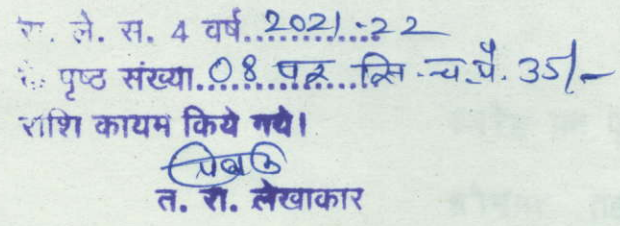 रा. ले. स. 4 वर्ष. 2021-22
के पृष्ठ संख्या. 08 पर सि. च. पै. 35/-
राशि कायम किये गये।
त. रा. लेखाकार